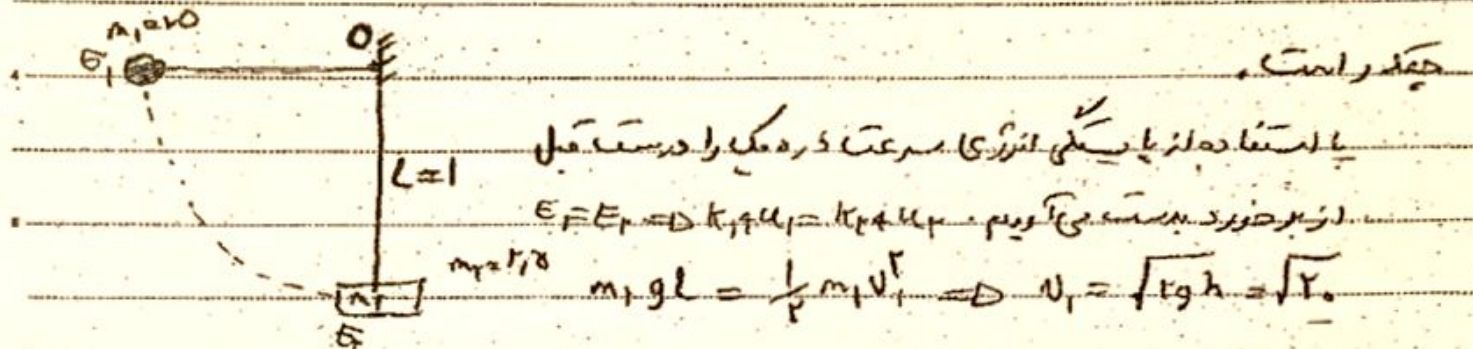 چقدر است.
O
L=1
با استفاده از پایستگی انرژی سرعت ذره یک را درست قبل
از برخورد بدست می‌آوریم. E₁=E₂ => K₁+U₁=K₂+U₂
m₁gL = ½ m₁V₁² => V₁ = √۲gh = √۲۰